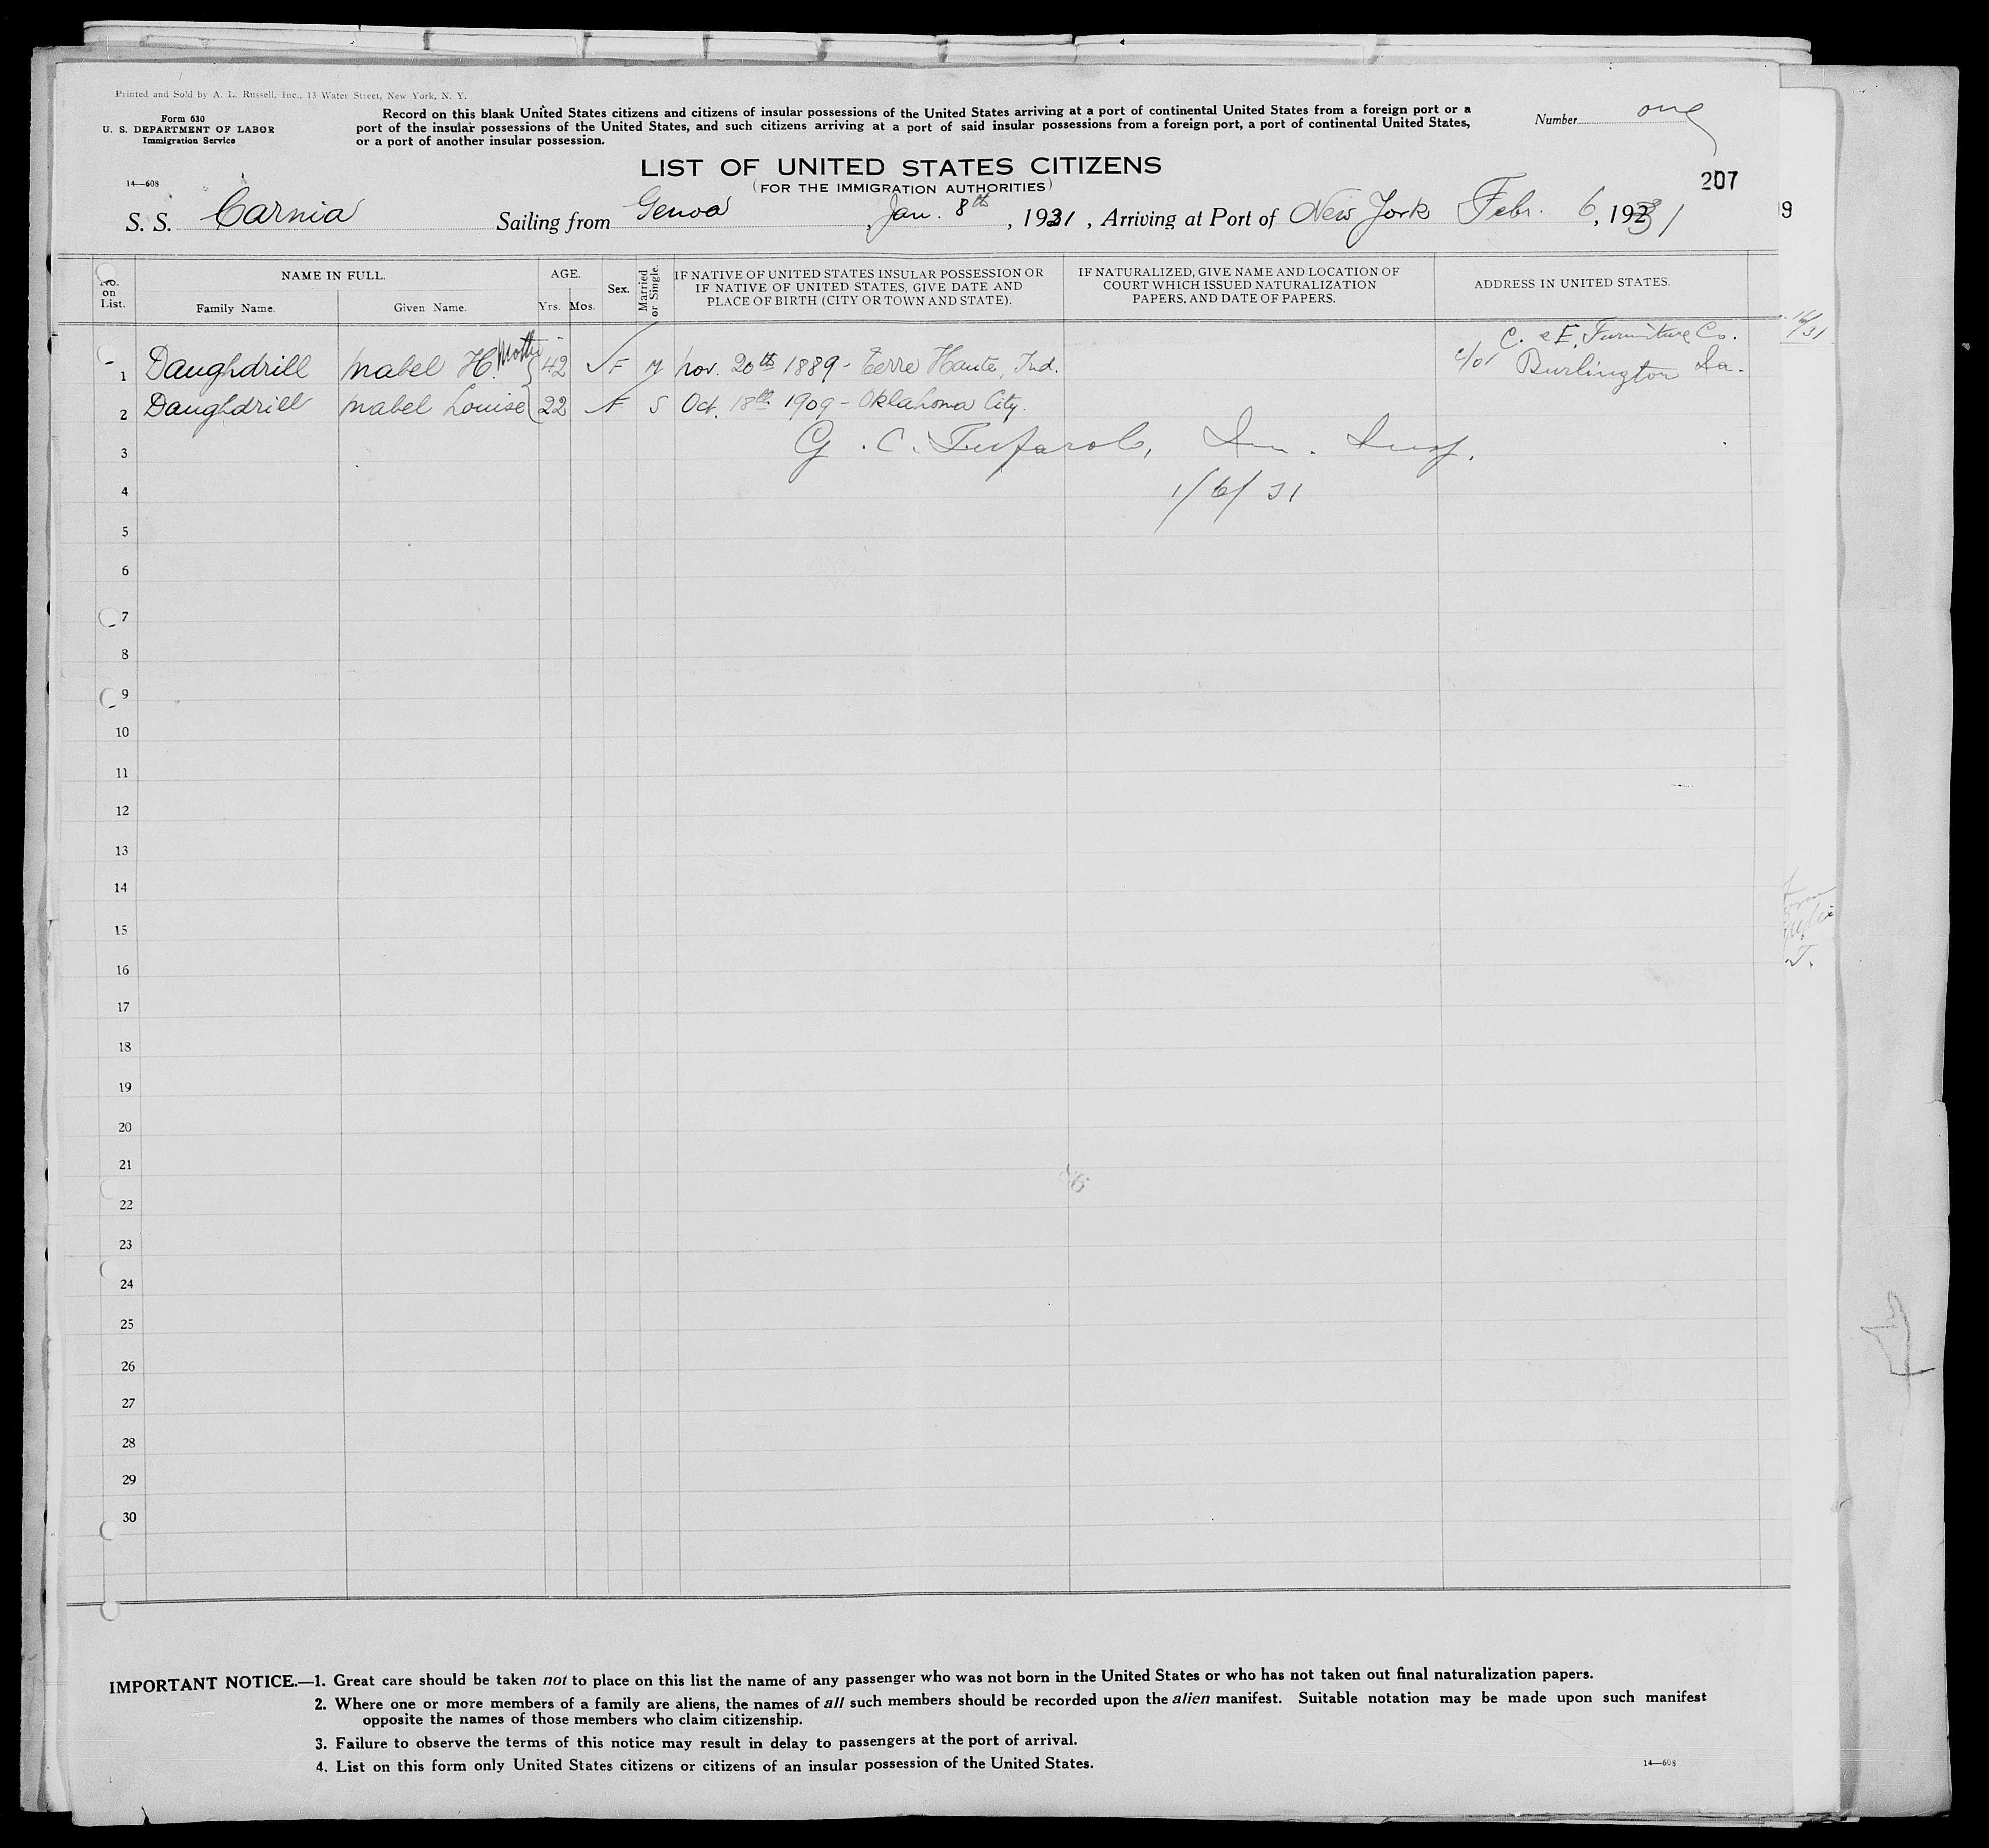 Printed and Sold by A. L. Russell, Inc., 13 Water Street, New York, N. Y.
Form 630
U. S. DEPARTMENT OF LABOR
Immigration Service
14—608
Record on this blank United States citizens and citizens of insular possessions of the United States arriving at a port of continental United States from a foreign port or a
port of the insular possessions of the United States, and such citizens arriving at a port of said insular possessions from a foreign port, a port of continental United States,
or a port of another insular possession.
Number one
LIST OF UNITED STATES CITIZENS
(FOR THE IMMIGRATION AUTHORITIES)
207
S. S. Carnia Sailing from Genoa, Jan. 8th, 1931, Arriving at Port of New York Febr. 6, 1931
9
No. on List. NAME IN FULL. AGE. Sex. Married or Single. IF NATIVE OF UNITED STATES INSULAR POSSESSION OR IF NATIVE OF UNITED STATES, GIVE DATE AND PLACE OF BIRTH (CITY OR TOWN AND STATE). IF NATURALIZED, GIVE NAME AND LOCATION OF COURT WHICH ISSUED NATURALIZATION PAPERS, AND DATE OF PAPERS. ADDRESS IN UNITED STATES.
Family Name. Given Name. Yrs. Mos.
C. & E. Furniture Co.
1 Daughdrill Mabel H. Mother 42 F M Nov. 20th 1889 - Terre Haute, Ind. c/o Burlington Ia.
2 Daughdrill Mabel Louise 22 F S Oct. 18th 1909 - Oklahoma City.
3 G. C.
4 1/6/31
5
6
7
8
9
10
11
12
13
14
15
16
17
18
19
20
21
22
23
24
25
26
27
28
29
30
IMPORTANT NOTICE.—1. Great care should be taken not to place on this list the name of any passenger who was not born in the United States or who has not taken out final naturalization papers.
2. Where one or more members of a family are aliens, the names of all such members should be recorded upon the alien manifest. Suitable notation may be made upon such manifest
opposite the names of those members who claim citizenship.
3. Failure to observe the terms of this notice may result in delay to passengers at the port of arrival.
4. List on this form only United States citizens or citizens of an insular possession of the United States.
14—608